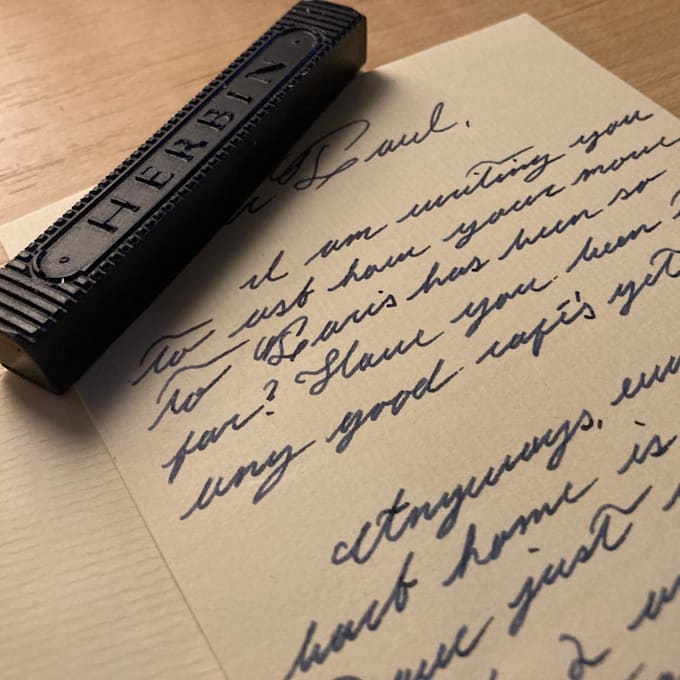 HERBIN
Paul,
I am writing you
to ask how your move
to Paris has been so
far? Have you been
any good café's yet
Anyways,
back home is
just
2